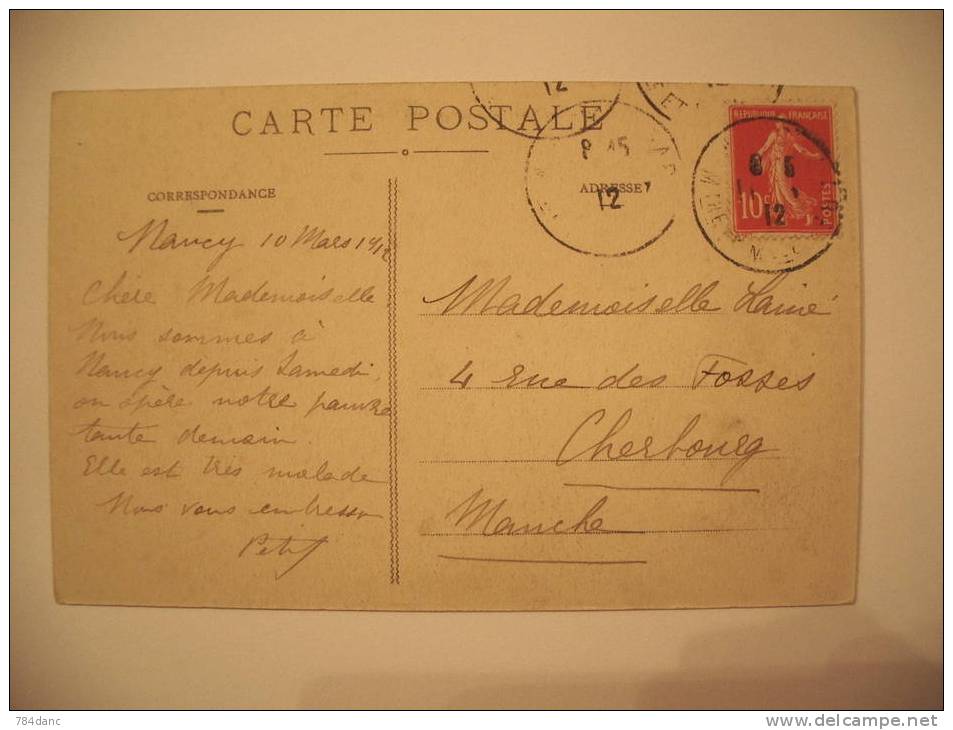 CARTE POSTALE
CORRESPONDANCE
Nancy 10 Mars 1912
Chère Mademoiselle
Nous sommes à
Nancy depuis Samedi,
on opère notre pauvre
tante demain.
Elle est très malade
Nous vous embrassons
Petit
ADRESSE
8 45
12
12
REPUBLIQUE FRANÇAISE
10c
POSTES
8 5
12
Mademoiselle Lainé
4 rue des Fosses
Cherbourg
Manche
784danc
www.delcampe.net